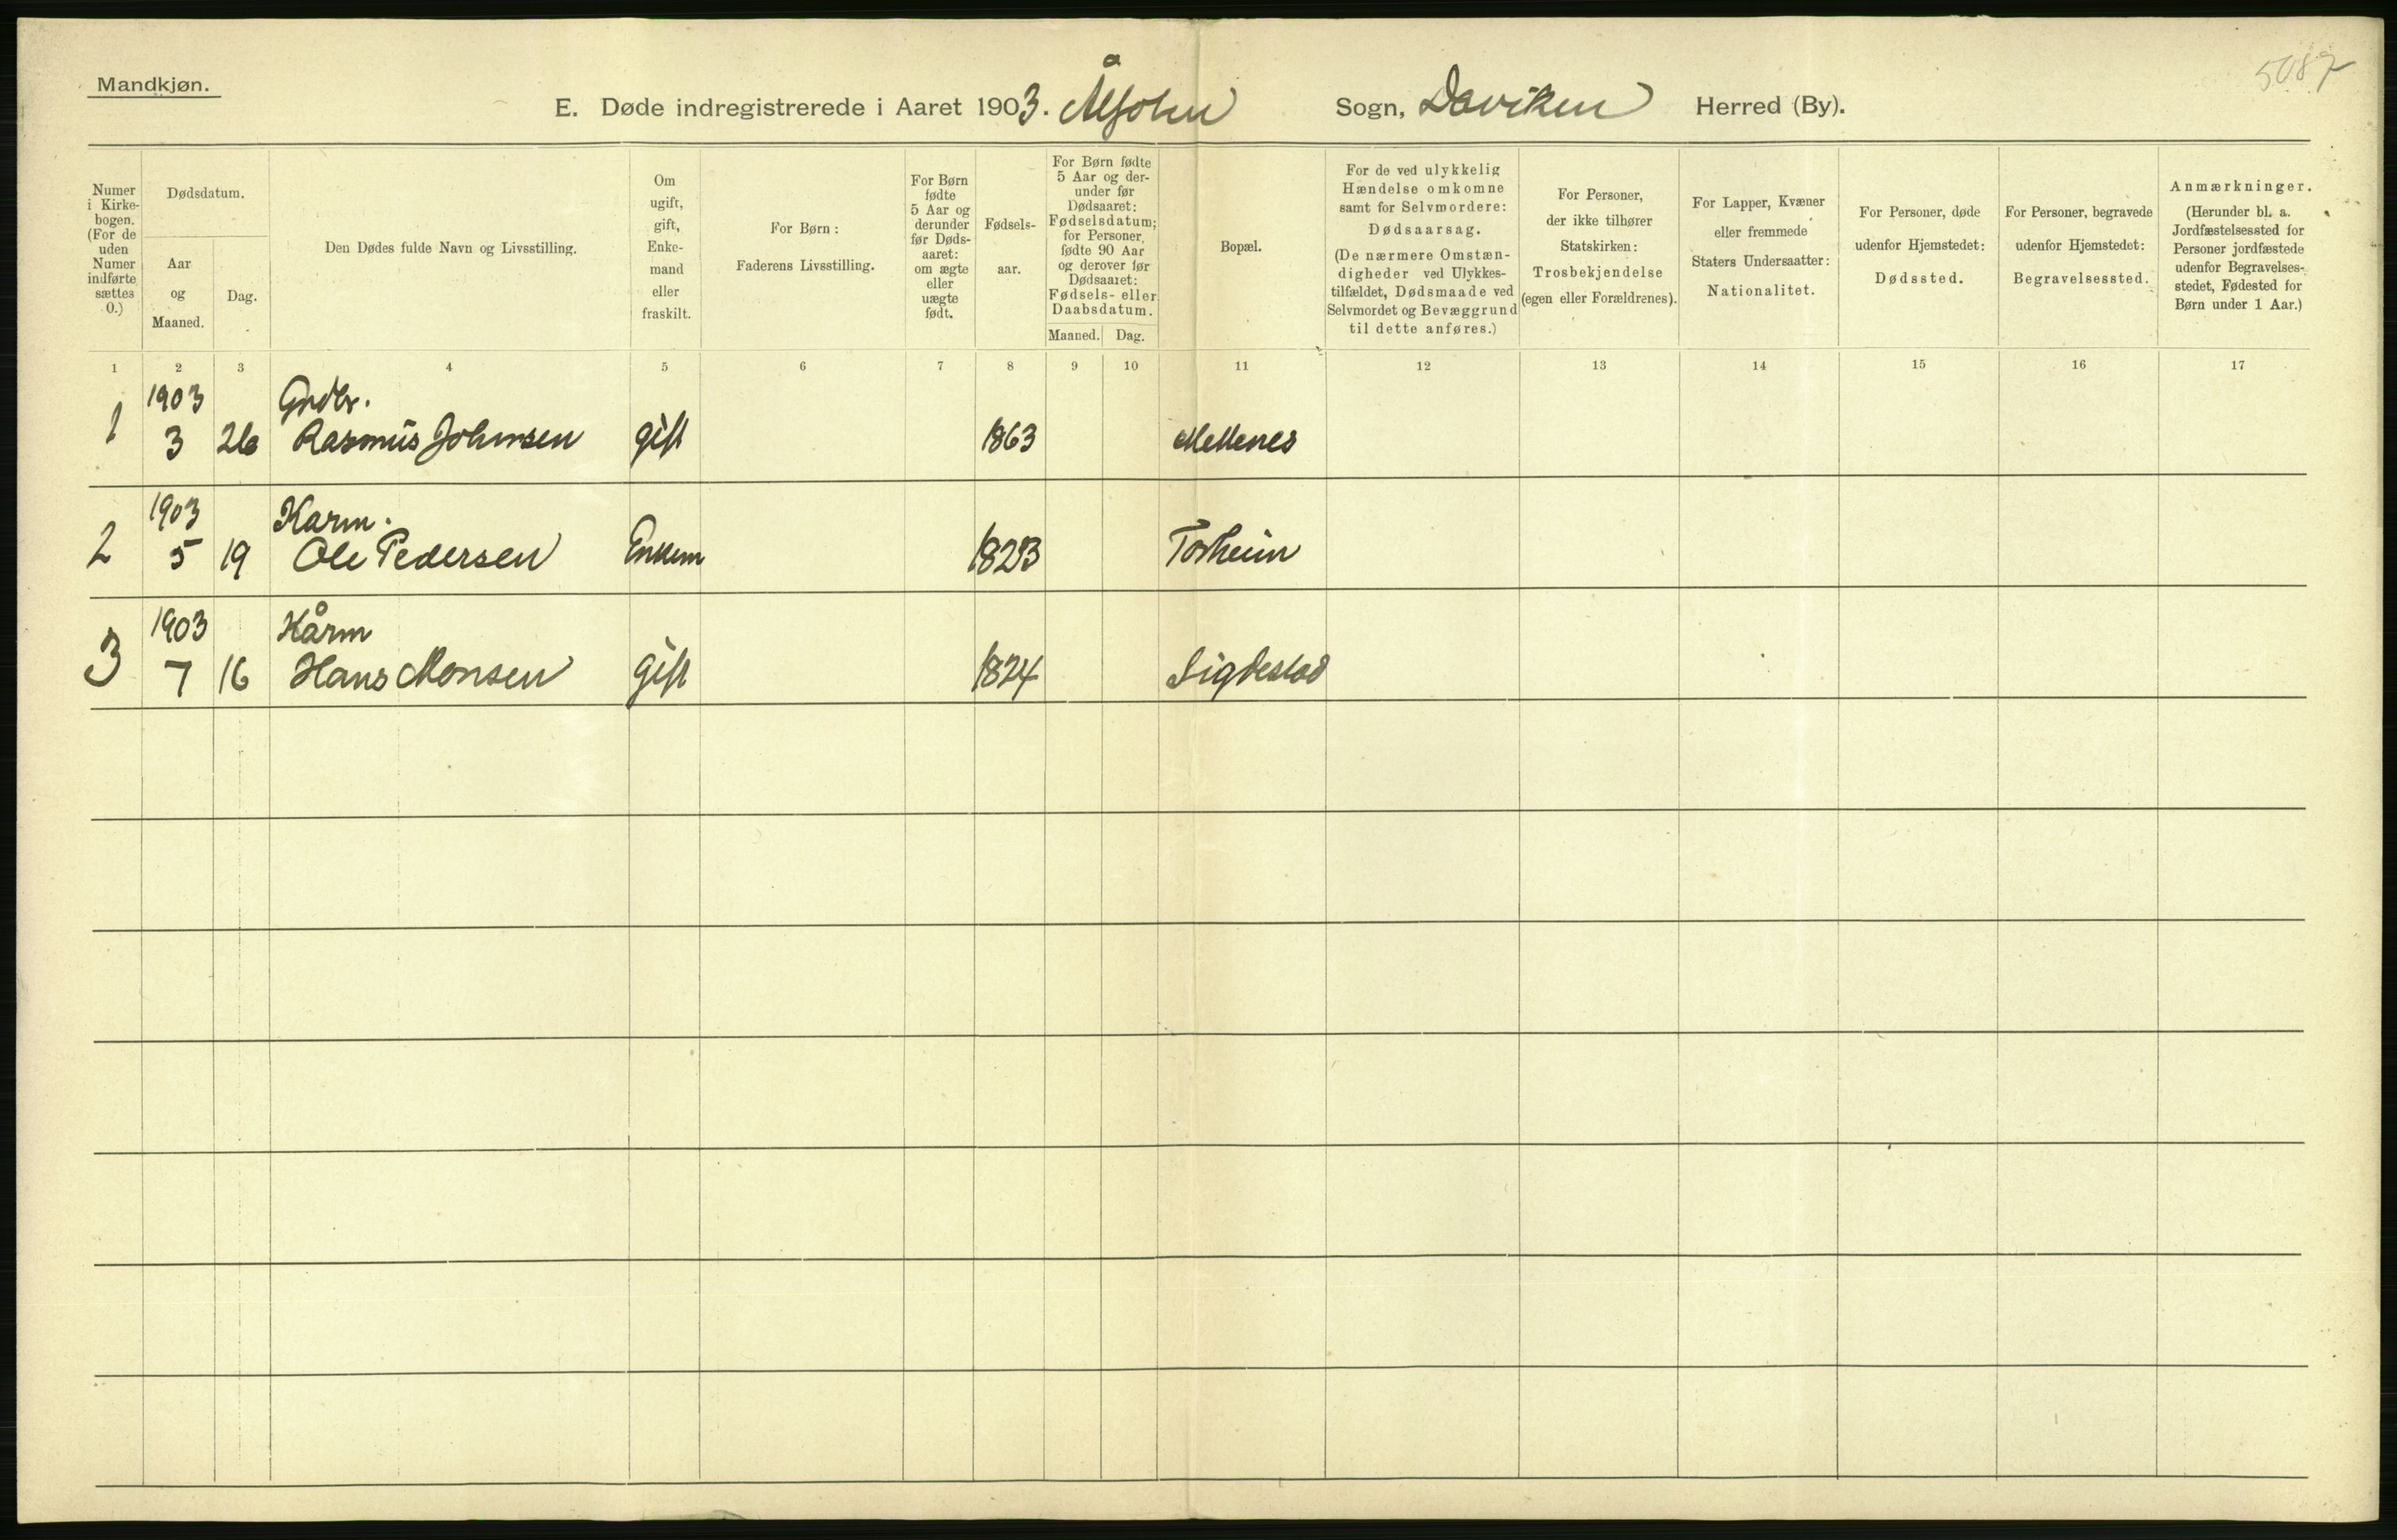 Mandkjøn.
5087
E. Døde indregistrerede i Aaret 1903. Ålfoten Sogn, Daviken Herred (By).
Numer i Kirke-bogen. (For de uden Numer indførte sættes 0.)
Dødsdatum.
Aar og Maaned.
Dag.
Den Dødes fulde Navn og Livsstilling.
Om ugift, gift, Enke-mand eller fraskilt.
For Børn: Faderens Livsstilling.
For Børn fødte 5 Aar og derunder før Døds-aaret: om ægte eller uægte født.
Fødsels-aar.
For Børn fødte 5 Aar og der-under før Dødsaaret: Fødselsdatum; for Personer, fødte 90 Aar og derover før Dødsaaret: Fødsels- eller Daabsdatum.
Maaned. Dag.
Bopæl.
For de ved ulykkelig Hændelse omkomne samt for Selvmordere: Dødsaarsag. (De nærmere Omstæn-digheder ved Ulykkes-tilfældet, Dødsmaade ved Selvmordet og Bevæggrund til dette anføres.)
For Personer, der ikke tilhører Statskirken: Trosbekjendelse (egen eller Forældrenes).
For Lapper, Kvæner eller fremmede Staters Undersaatter: Nationalitet.
For Personer, døde udenfor Hjemstedet: Dødssted.
For Personer, begravede udenfor Hjemstedet: Begravelsessted.
Anmærkninger. (Herunder bl. a. Jordfæstelsessted for Personer jordfæstede udenfor Begravelses-stedet, Fødested for Børn under 1 Aar.)
1 2 3 4 5 6 7 8 9 10 11 12 13 14 15 16 17
1903 Grdbr.
1 3 26 Rasmus Johnsen gift 1863
1903 Karm.
2 5 19 Ole Pedersen Enkem 1823
1903 Kårm
3 7 16 Hans Monsen gift 1824 Sigdestad